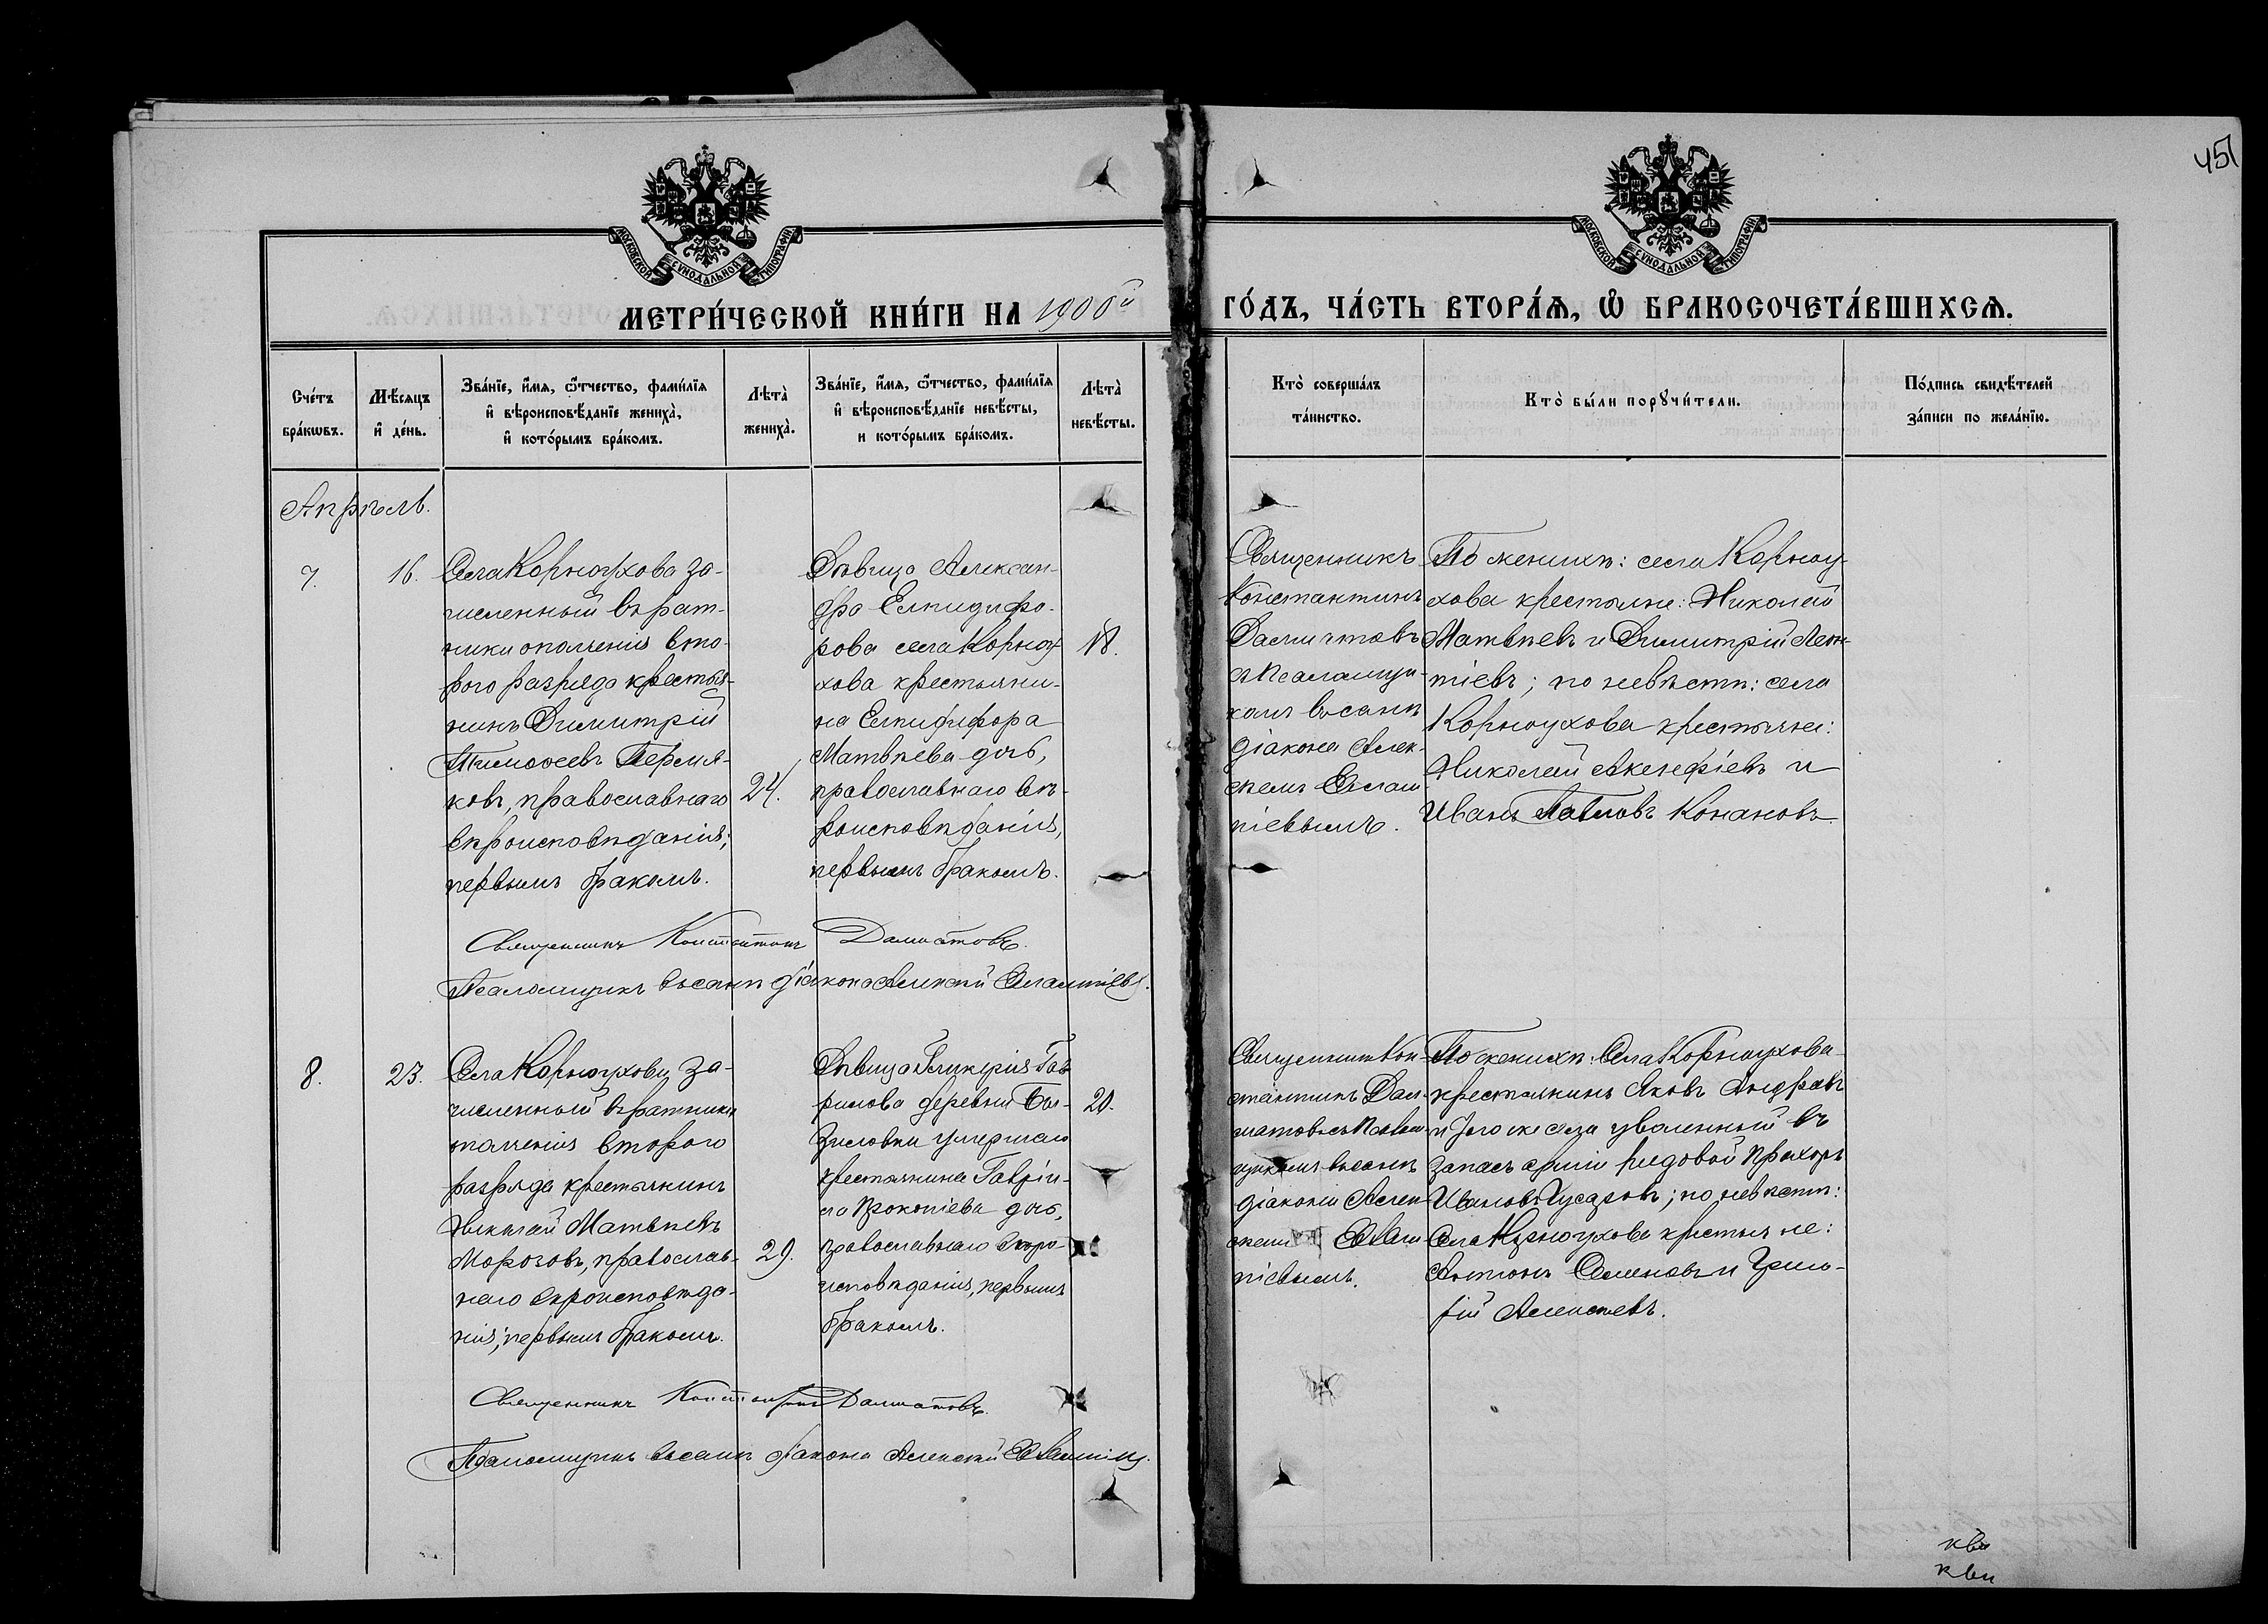 451
МОСКОВСКОЙ СѴНОДАЛЬНОЙ ТИПОГРАФІИ
МОСКОВСКОЙ СѴНОДАЛЬНОЙ ТИПОГРАФІИ
МЕТРИ́ЧЕСКОЙ КНИ́ГИ НА 1900й ГО́ДЪ, ЧА́СТЬ ВТОРА́Ѧ, Ѽ БРАКОСОЧЕТА́ВШИХСѦ.
Сче́тъ
бра́кωвъ.
Мѣ́сѧцъ
и҆ де́нь.
Зва́нїе, и҆́мѧ, ѻ҆́тчество, фами́лїѧ
и҆ вѣроисповѣ́данїе жениха̀,
и҆ кото́рымъ бра́комъ.
Лѣта̀
жениха̀.
Зва́нїе, и҆́мѧ, ѻ҆́тчество, фами́лїѧ
и҆ вѣроисповѣ́данїе невѣ́сты,
и кото́рымъ бра́комъ.
Лѣта̀
невѣ́сты.
Кто̀ соверша́лъ
та́инство.
Кто̀ бы́ли порꙋчи́тели.
По́дпись свидѣ́телей
за́писи по жела́нїю.
Апрѣль.
7.
16.
Села Корноухова за-
численный въ рат-
ники ополченія вто-
рого разряда крестья-
нинъ Димитрій
Тимоѳеевъ Пермя-
ковъ, православнаго
вѣроисповѣданія;
первымъ бракомъ.
24.
Дѣвица Алексан-
дра Елпидифо-
рова села Корноу-
хова крестьяни-
на Елпидифора
Матвѣева дочь,
православнаго вѣ-
роисповѣданія,
первымъ бракомъ.
18.
Священникъ
Константинъ
Далматовъ
съ псаломщи-
комъ въ санѣ
діакона Алек-
сѣемъ
По женихѣ: села Корноу-
хова крестьяне: Николай
Матвѣевъ и Димитрій Леон-
тіевъ; по невѣстѣ: села
Корноухова крестьяне:
Николай и
Иванъ Павловъ Конановъ.
Священникъ Константинъ Далматовъ.
Псаломщикъ въ санѣ діакона Алексѣй
8.
23.
Села Корноухова за-
численный въ ратники
ополченія второго
разряда крестьянинъ
Николай Матвѣевъ
Морозовъ, православ-
наго вѣроисповѣда-
нія; первымъ бракомъ.
29.
Дѣвица Гликерія Гав-
рилова деревни
умершаго
крестьянина Гаврі-
ла Прокопіева дочь,
православнаго вѣро-
исповѣданія, первымъ
бракомъ.
20.
Священникъ Кон-
стантинъ Дал-
матовъ съ псалом-
щикомъ въ санѣ
діакона Алек-
сѣемъ
По женихѣ: Села Корноухова
крестьянинъ Яковъ Андреевъ
и того же села уволенный въ
запасъ арміи рядовой Прохоръ
Ивановъ; по невѣстѣ:
Села Корноухова крестьяне:
Антонъ Семеновъ и Григо-
рій Алексѣевъ.
Священникъ Константинъ Далматовъ.
Псаломщикъ въ санѣ діакона Алексѣй